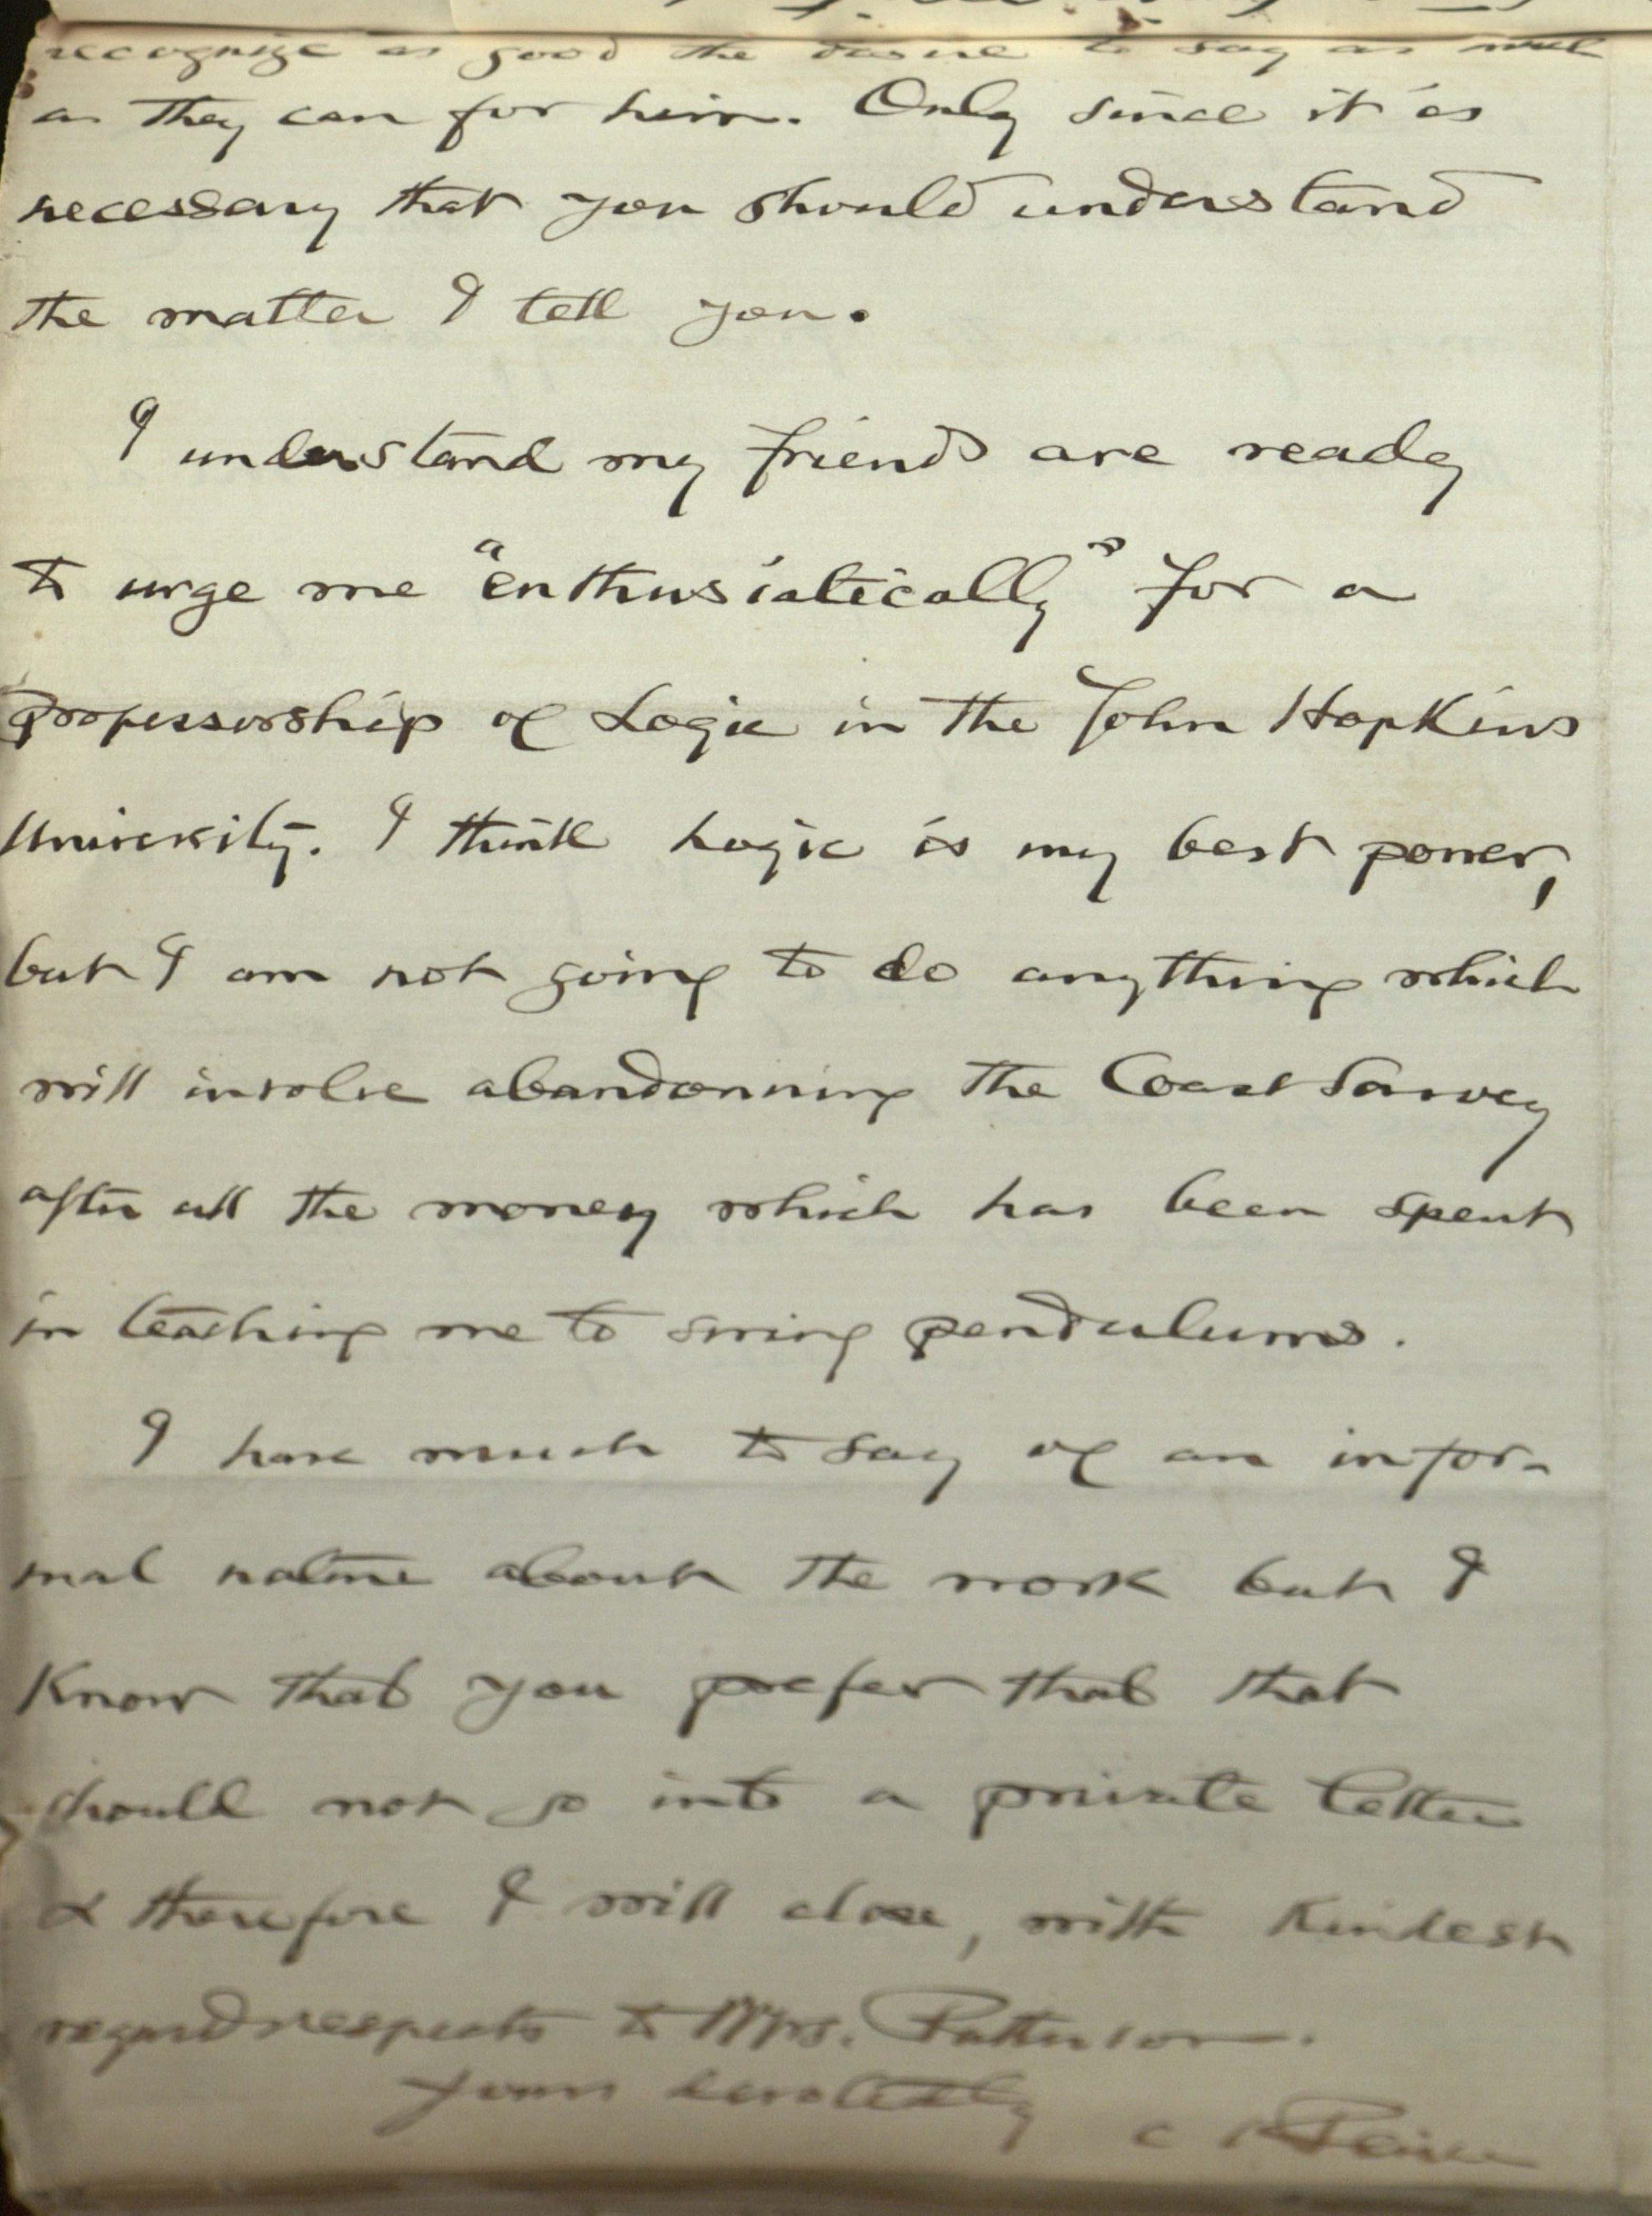 recognize as good the desire to say as much
as they can for him. Only since it is
necessary that you should understand
the matter I tell you.
I understand my friends are ready
to urge me "enthusiatically" for a
professorship of Logic in the John Hopkins
University. I think Logic is my best power,
but I am not going to do anything which
will involve abandonning the Coast Survey
after all the money which has been spent
in teaching me to swing pendulums.
I have much to say of an infor-
mal nature about the work but I
know that you prefer that that
should not go into a private letter
& therefore I will close, with kindest
regard respects to Mrs. Patterson.
Yours devotedly C S Peirce